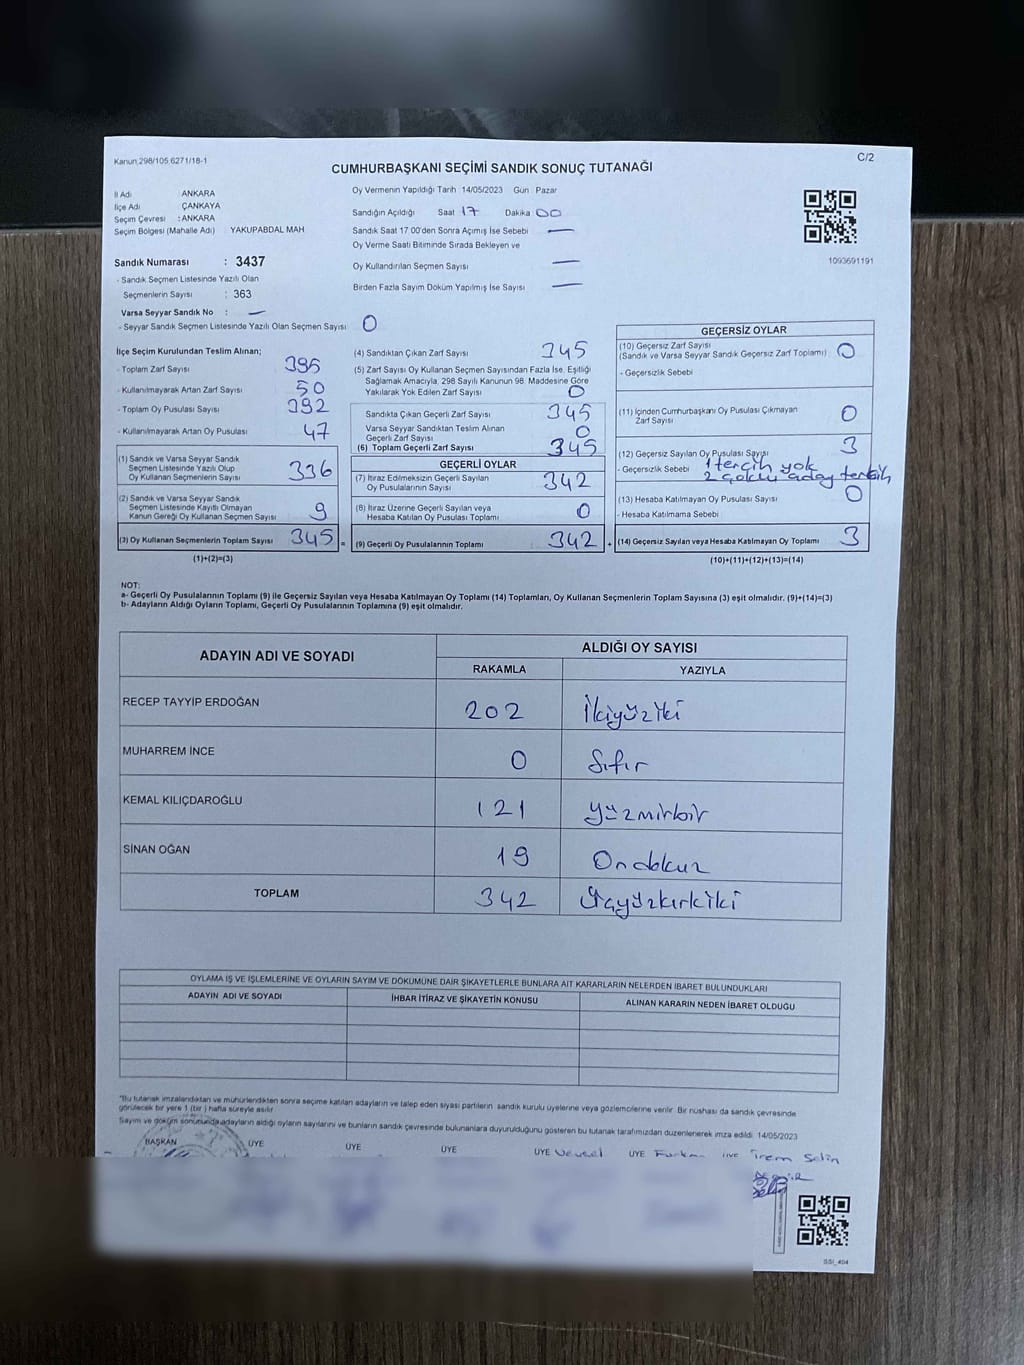 Kanun 298/105 6271/18-1
C/2
CUMHURBAŞKANI SEÇİMİ SANDIK SONUÇ TUTANAĞI
İl Adı ANKARA
İlçe Adı ÇANKAYA
Seçim Çevresi : ANKARA
Seçim Bölgesi (Mahalle Adı) YAKUPABDAL MAH
Oy Vermenin Yapıldığı Tarih 14/05/2023 Gün Pazar
Sandığın Açıldığı Saat 17 Dakika 00
Sandık Saat 17.00'den Sonra Açılmış İse Sebebi —
Oy Verme Saati Bitiminde Sırada Bekleyen ve
Oy Kullandırılan Seçmen Sayısı —
Birden Fazla Sayım Döküm Yapılmış İse Sayısı —
1093691191
Sandık Numarası : 3437
- Sandık Seçmen Listesinde Yazılı Olan
Seçmenlerin Sayısı : 363
Varsa Seyyar Sandık No : —
- Seyyar Sandık Seçmen Listesinde Yazılı Olan Seçmen Sayısı 0
İlçe Seçim Kurulundan Teslim Alınan;
- Toplam Zarf Sayısı 395
- Kullanılmayarak Artan Zarf Sayısı 50
- Toplam Oy Pusulası Sayısı 392
- Kullanılmayarak Artan Oy Pusulası 47
(1) Sandık ve Varsa Seyyar Sandık
Seçmen Listesinde Yazılı Olup
Oy Kullanan Seçmenlerin Sayısı 336
(2) Sandık ve Varsa Seyyar Sandık
Seçmen Listesinde Kayıtlı Olmayan
Kanun Gereği Oy Kullanan Seçmen Sayısı 9
(3) Oy Kullanan Seçmenlerin Toplam Sayısı 345 =
(1)+(2)=(3)
(4) Sandıktan Çıkan Zarf Sayısı 345
(5) Zarf Sayısı Oy Kullanan Seçmen Sayısından Fazla İse, Eşitliği
Sağlamak Amacıyla, 298 Sayılı Kanunun 98. Maddesine Göre
Yakılarak Yok Edilen Zarf Sayısı 0
Sandıkta Çıkan Geçerli Zarf Sayısı 345
Varsa Seyyar Sandıktan Teslim Alınan
Geçerli Zarf Sayısı 0
(6) Toplam Geçerli Zarf Sayısı 345
GEÇERLİ OYLAR
(7) İtiraz Edilmeksizin Geçerli Sayılan
Oy Pusulalarının Sayısı 342
(8) İtiraz Üzerine Geçerli Sayılan veya
Hesaba Katılan Oy Pusulası Toplamı 0
(9) Geçerli Oy Pusulalarının Toplamı 342 +
GEÇERSİZ OYLAR
(10) Geçersiz Zarf Sayısı
(Sandık ve Varsa Seyyar Sandık Geçersiz Zarf Toplamı) 0
- Geçersizlik Sebebi
(11) İçinden Cumhurbaşkanı Oy Pusulası Çıkmayan
Zarf Sayısı 0
(12) Geçersiz Sayılan Oy Pusulası Sayısı 3
- Geçersizlik Sebebi 1 tercih yok
2 çoklu aday tercih
(13) Hesaba Katılmayan Oy Pusulası Sayısı 0
- Hesaba Katılmama Sebebi
(14) Geçersiz Sayılan veya Hesaba Katılmayan Oy Toplamı 3
(10)+(11)+(12)+(13)=(14)
NOT:
a- Geçerli Oy Pusulalarının Toplamı (9) ile Geçersiz Sayılan veya Hesaba Katılmayan Oy Toplamı (14) Toplamları, Oy Kullanan Seçmenlerin Toplam Sayısına (3) eşit olmalıdır. (9)+(14)=(3)
b- Adayların Aldığı Oyların Toplamı, Geçerli Oy Pusulalarının Toplamına (9) eşit olmalıdır.
ADAYIN ADI VE SOYADI ALDIĞI OY SAYISI
RAKAMLA YAZIYLA
RECEP TAYYİP ERDOĞAN 202 İkiyüziki
MUHARREM İNCE 0 Sıfır
KEMAL KILIÇDAROĞLU 121 yüzmirbir
SİNAN OĞAN 19 Ondokuz
TOPLAM 342 Üçyüzkırkiki
OYLAMA İŞ VE İŞLEMLERİNE VE OYLARIN SAYIM VE DÖKÜMÜNE DAİR ŞİKAYETLERLE BUNLARA AİT KARARLARIN NELERDEN İBARET BULUNDUKLARI
ADAYIN ADI VE SOYADI İHBAR İTİRAZ VE ŞİKAYETİN KONUSU ALINAN KARARIN NEDEN İBARET OLDUĞU
"Bu tutanak imzalandıktan ve mühürlendikten sonra seçime katılan adayların ve talep eden siyasi partilerin sandık kurulu üyelerine veya gözlemcilerine verilir. Bir nüshası da sandık çevresinde
görülecek bir yere 1 (bir) hafta süreyle asılır
Sayım ve döküm sonucunda adayların aldığı oyların sayılarını ve bunların sandık çevresinde bulunanlara duyurulduğunu gösteren bu tutanak tarafımızdan düzenlenerek imza edildi. 14/05/2023
BAŞKAN ÜYE ÜYE ÜYE ÜYE Veysel ÜYE Furkan ÜYE İrem Selin
SSI_404